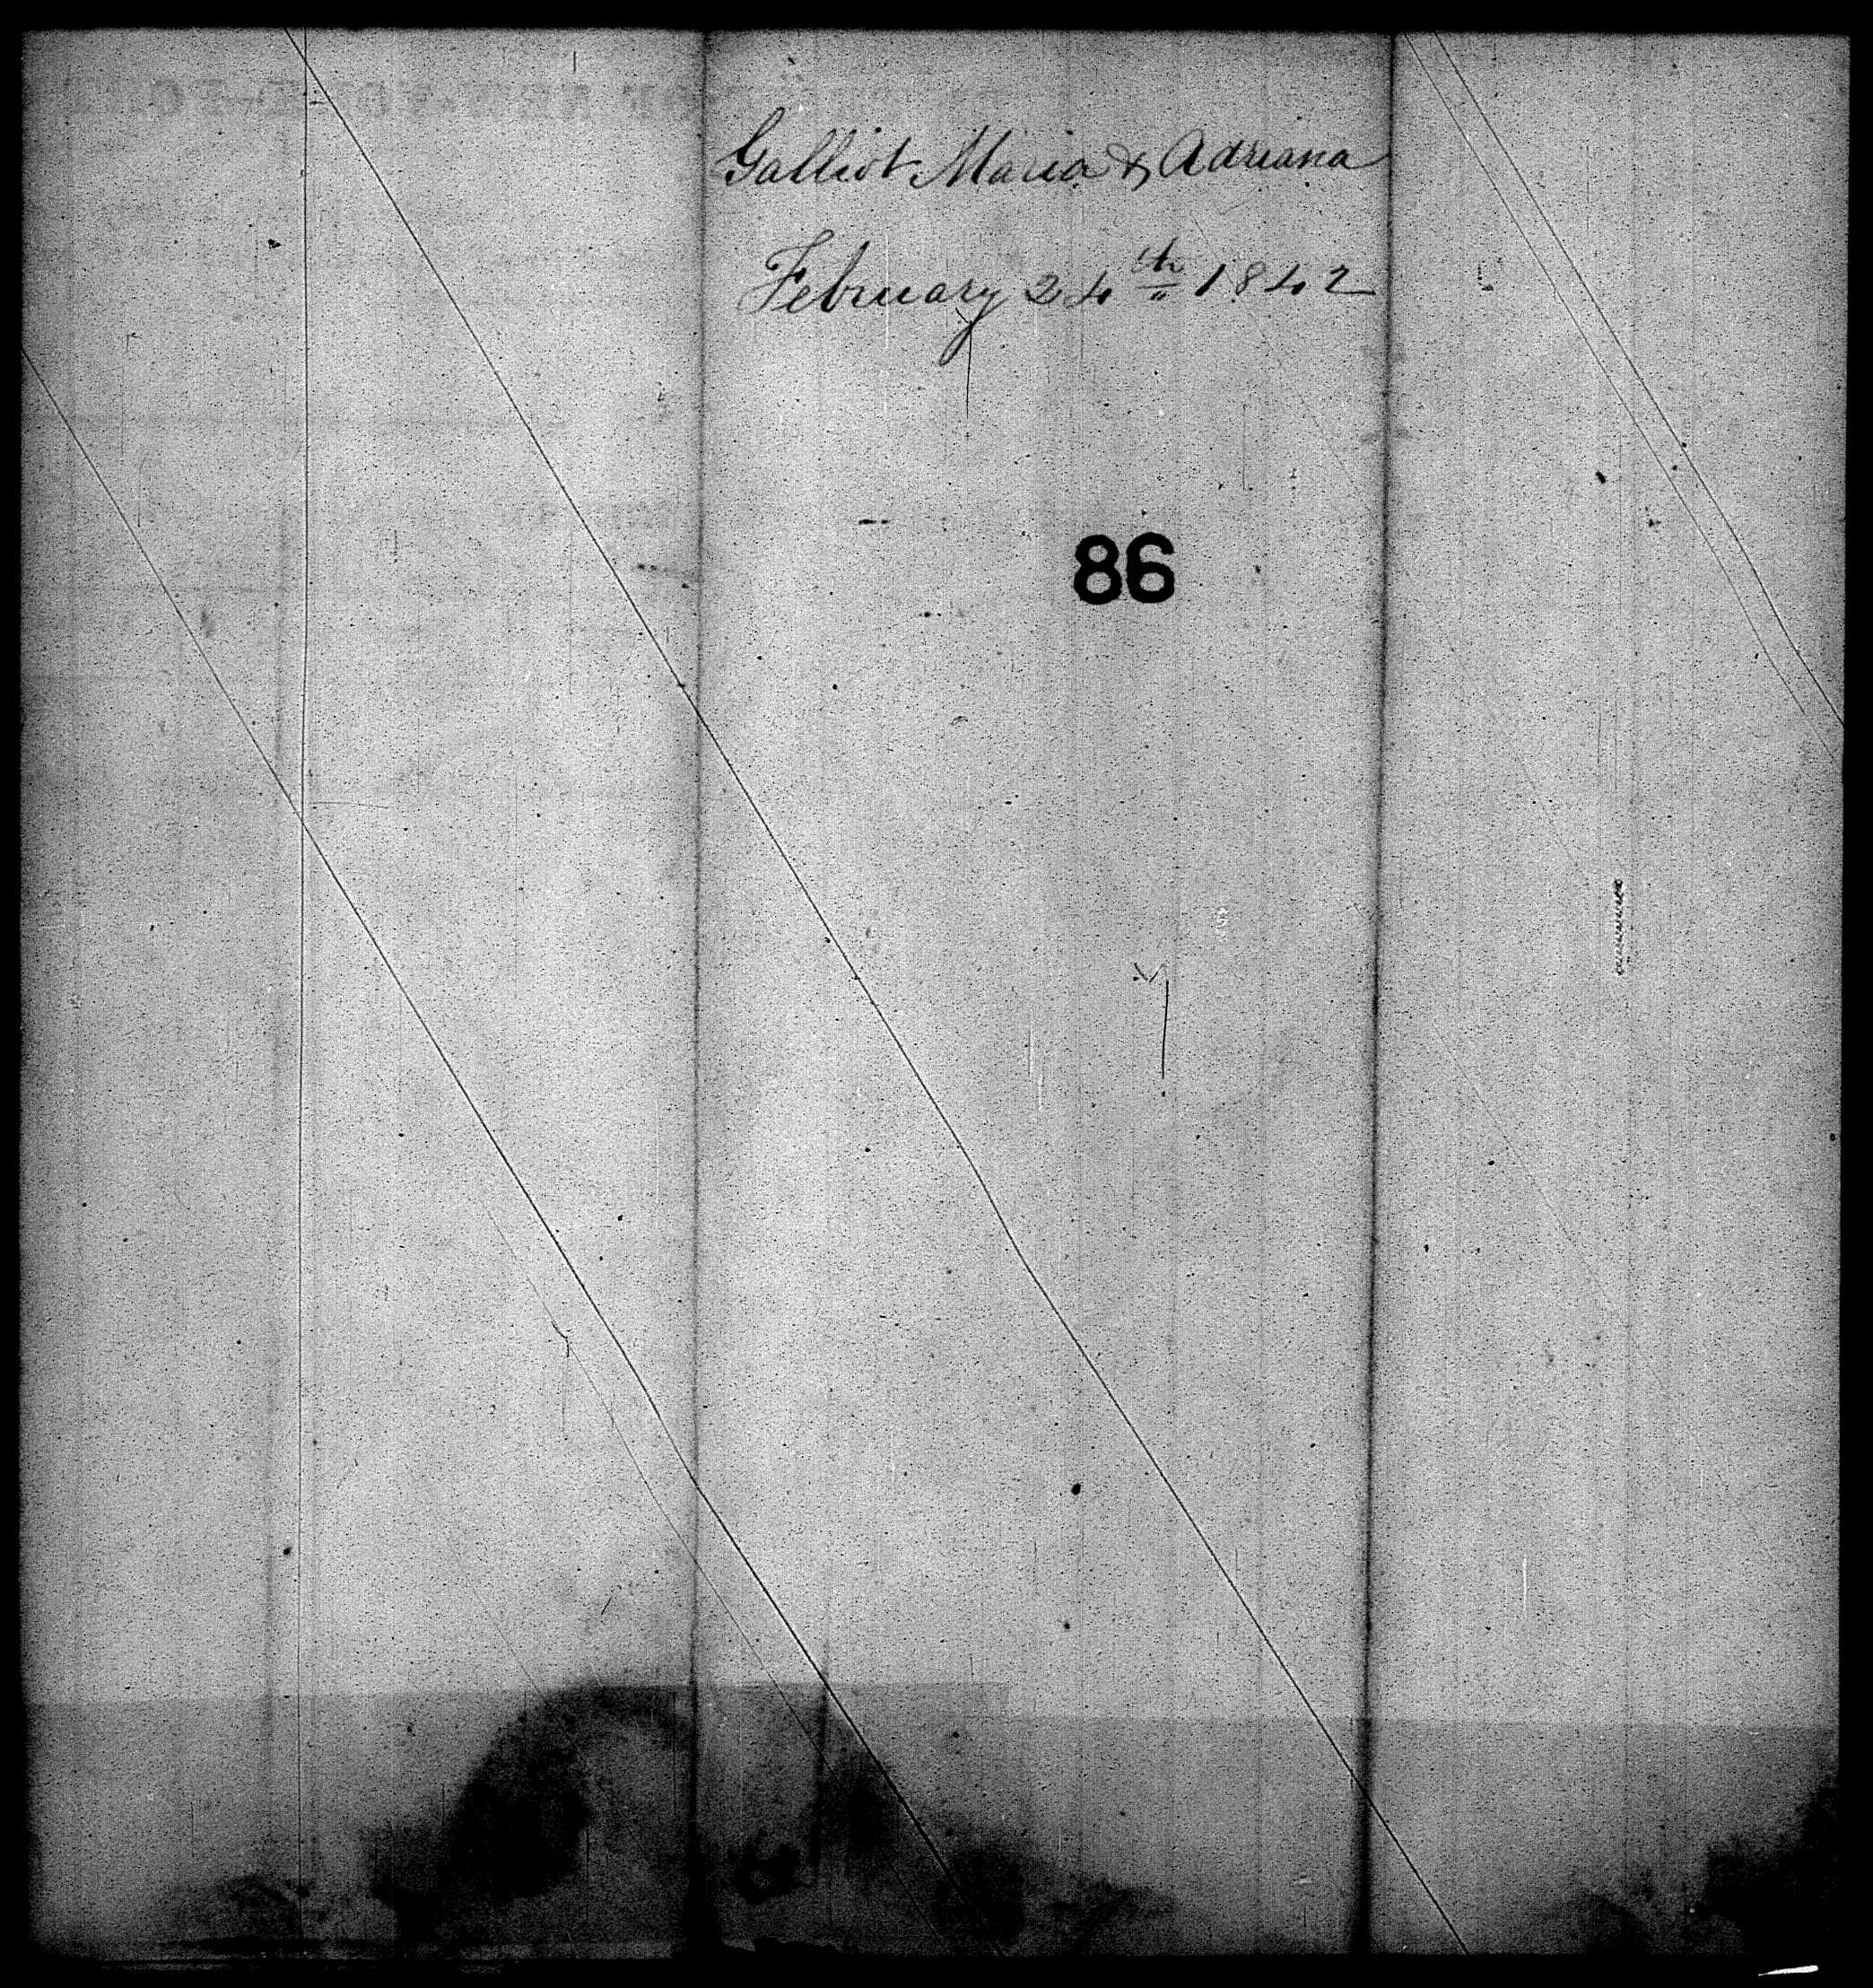 Galliot Maria & Adriana
February 24th 1842
86